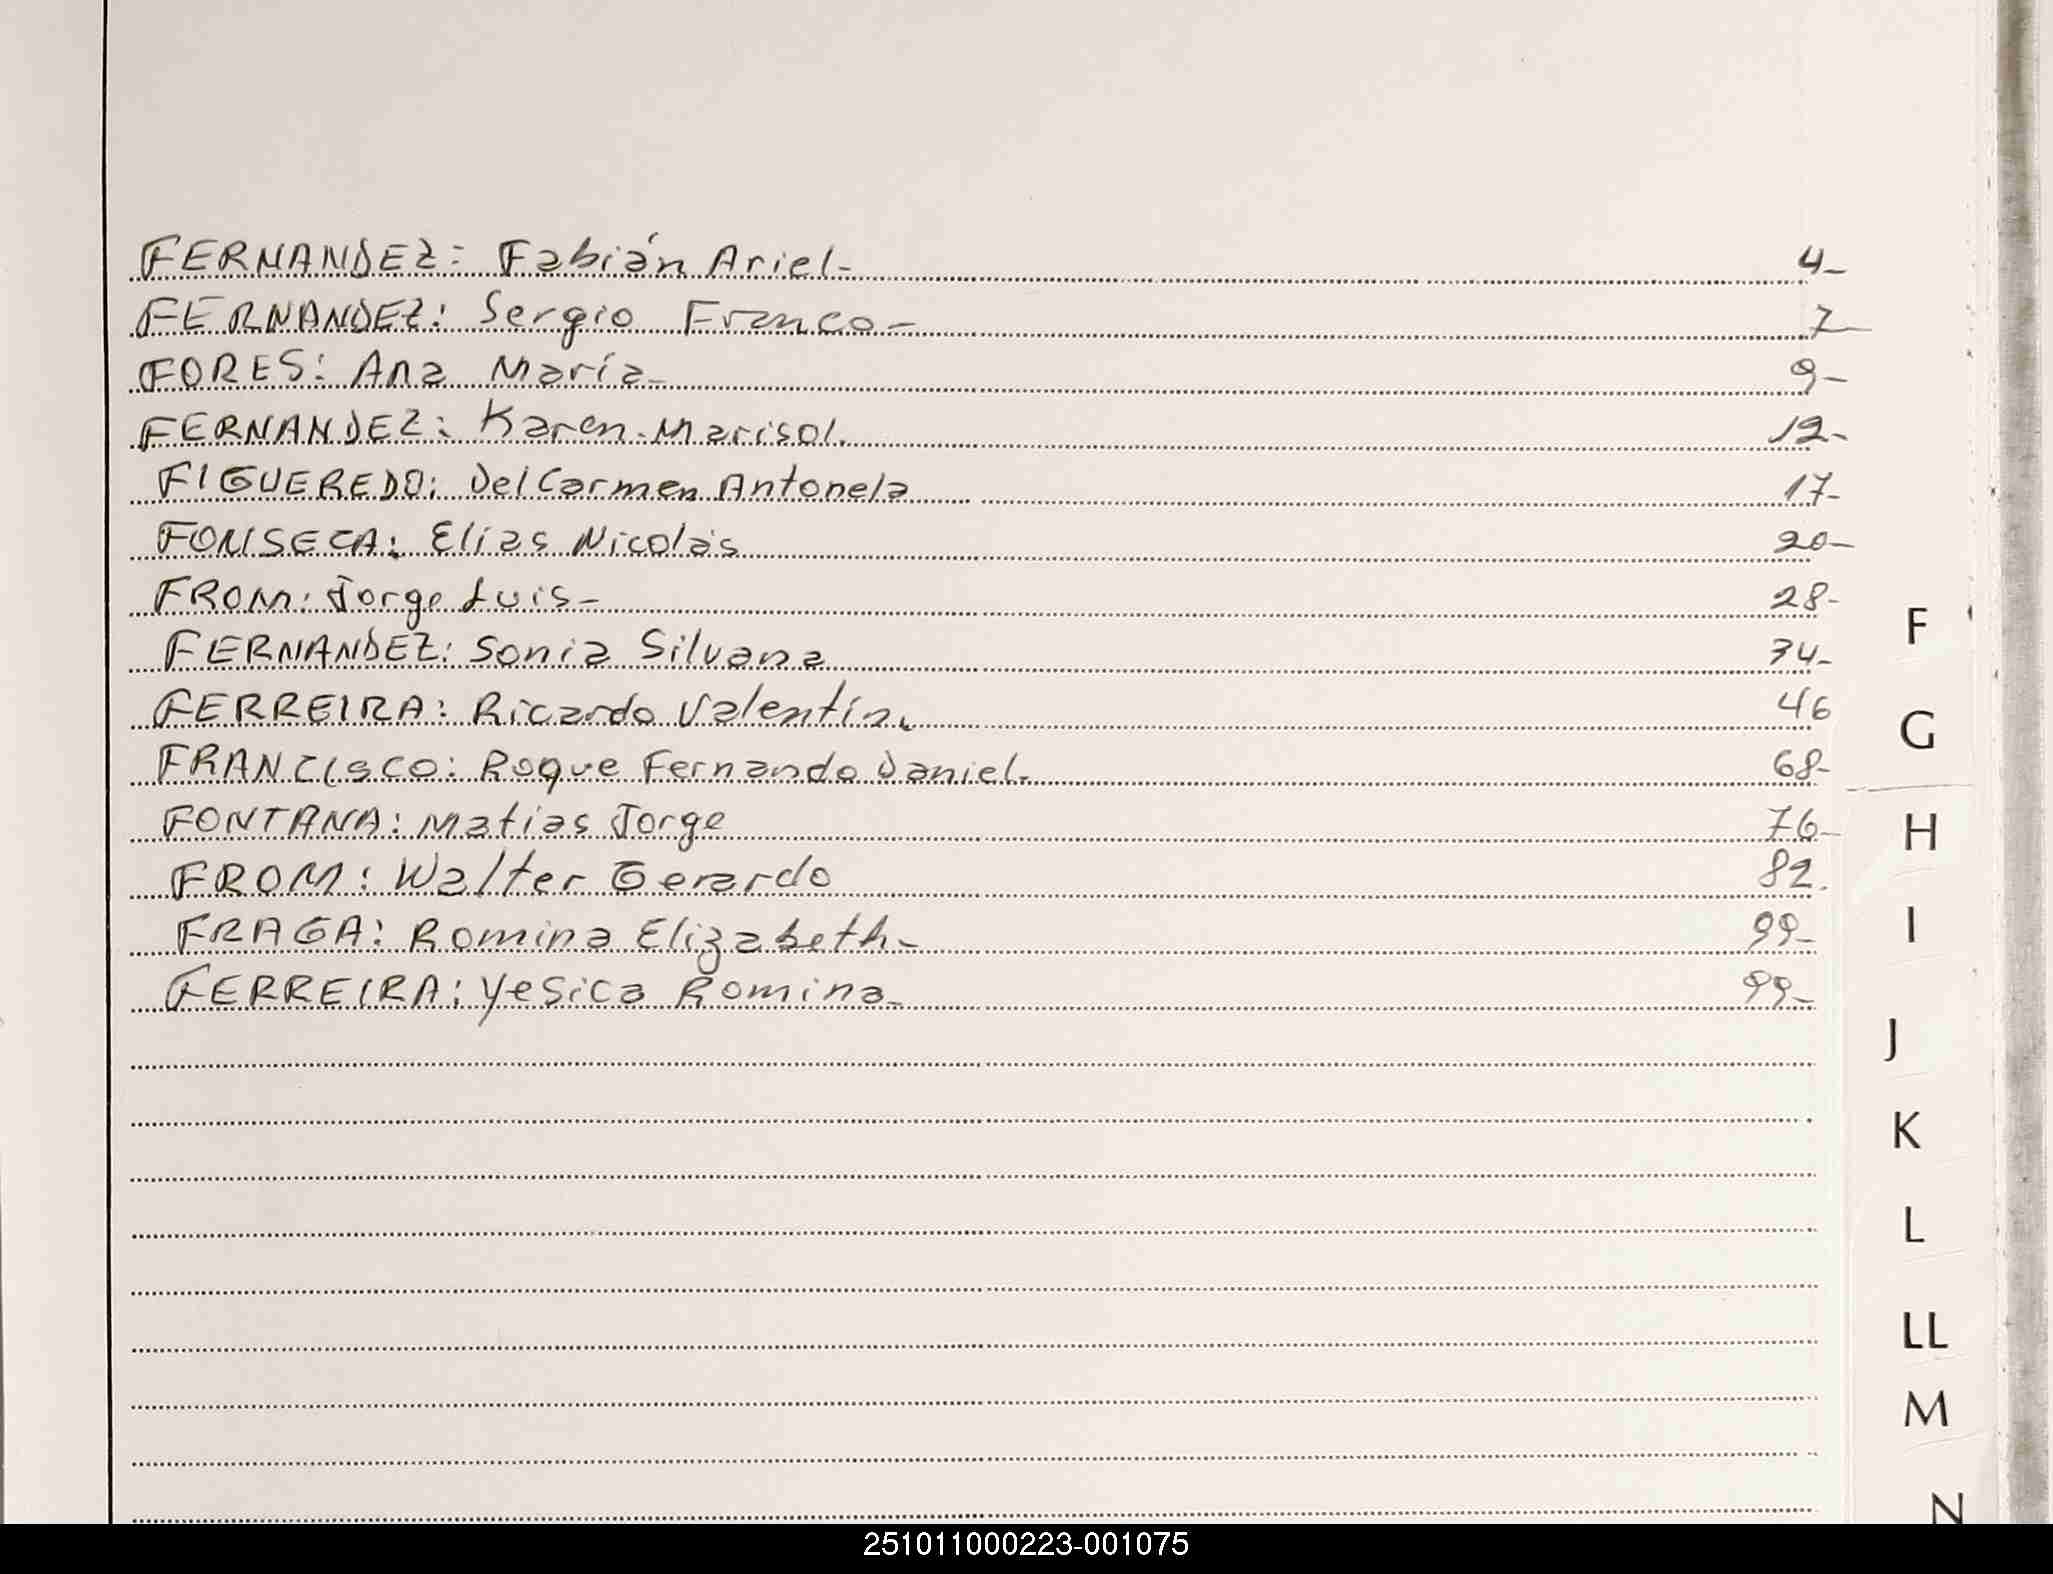 FERNANDEZ: Fabián Ariel- 4-
FERNANDEZ: Sergio Franco- 7-
FORES: Ana María- 9-
FERNANDEZ: Karen Marisol. 12-
FIGUEREDO: Del Carmen Antonela 17-
FONSECA: Elias Nicolás 20-
FROM: Jorge Luis- 28-
FERNANDEZ: Sonia Silvana 34-
FERREIRA: Ricardo Valentín. 46
FRANCISCO: Roque Fernando Daniel. 68-
FONTANA: Matias Jorge 76-
FROM: Walter Gerardo 82.
FRAGA: Romina Elizabeth- 99-
FERREIRA: Yesica Romina- 99-
F
G
H
I
J
K
L
LL
M
N
251011000223-001075